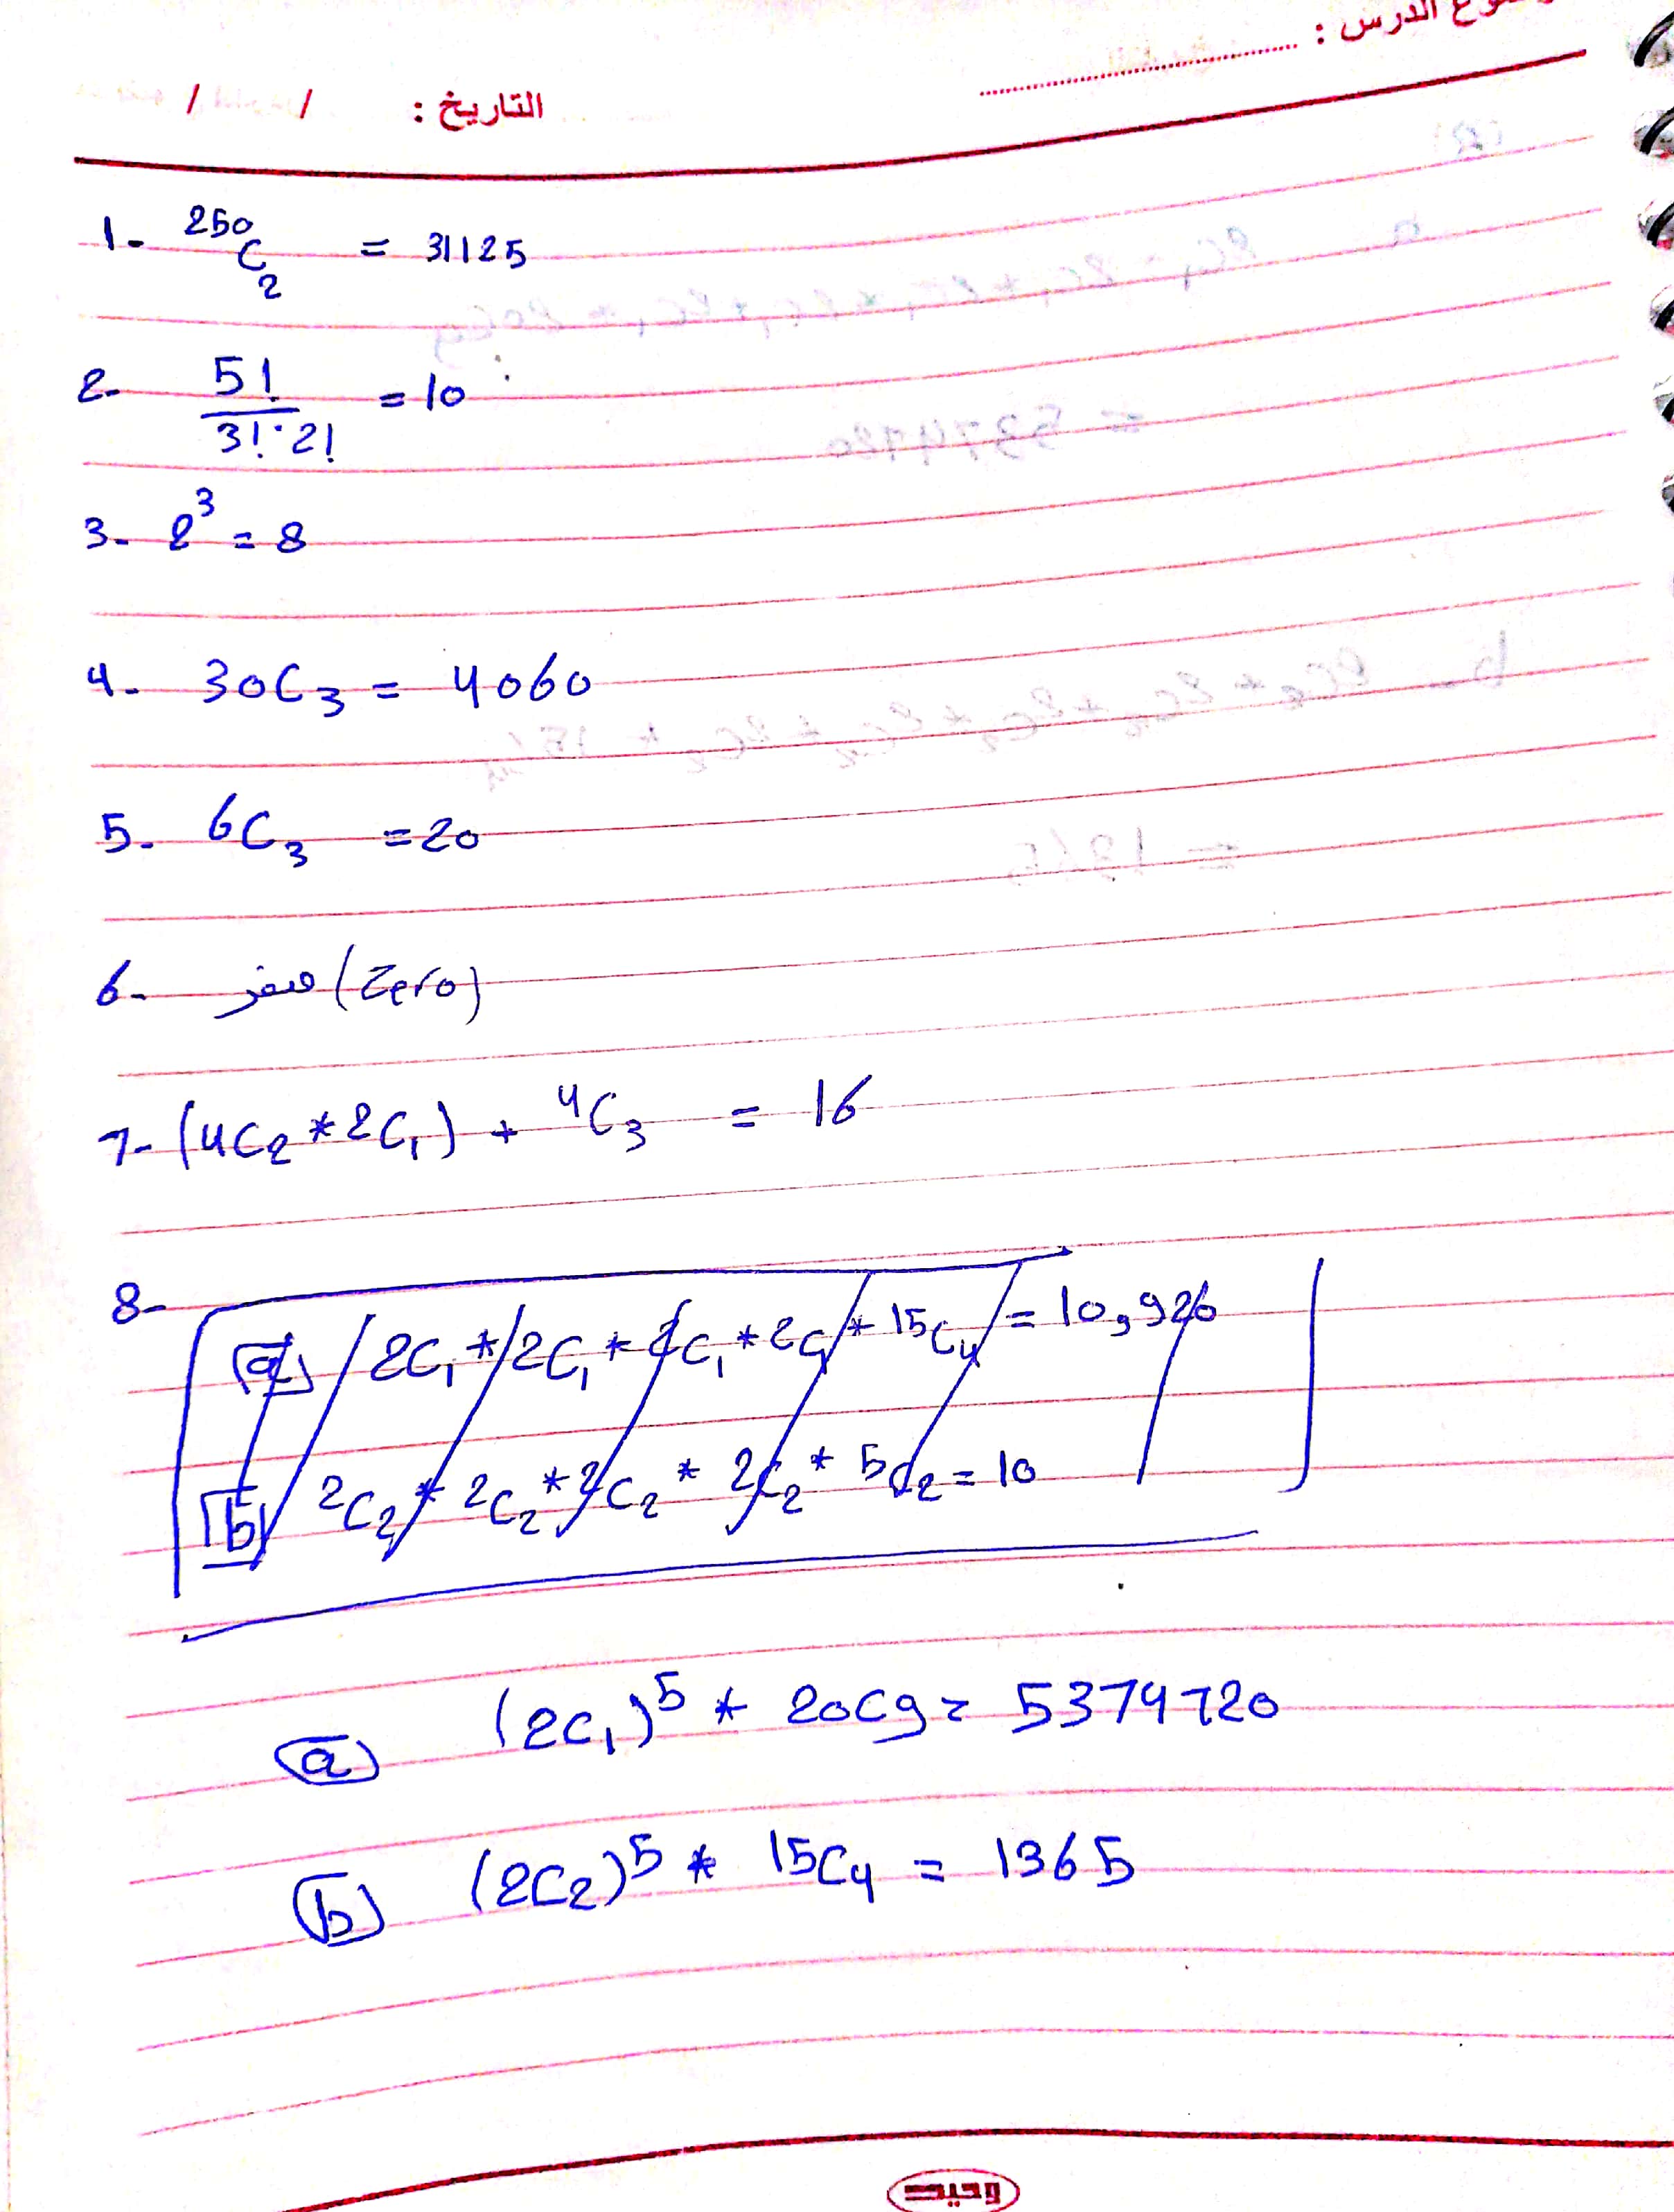 موضوع الدرس :
التاريخ : / /
1- 250C2 = 31125
2- 5! / 3!·2! = 10
3- 2³ = 8
4- 30C3 = 4060
5- 6C3 = 20
6- صفر (Zero)
7- (4C2 * 2C1) + 4C3 = 16
8-
(a) 2C1 * 2C1 * 2C1 * 2C1 * 15C4 = 10,920
(b) 2C2 * 2C2 * 2C2 * 2C2 * 5C2 = 10
(a) (2C1)⁵ * 20C9 = 5374720
(b) (2C2)⁵ * 15C4 = 1365
وحيد